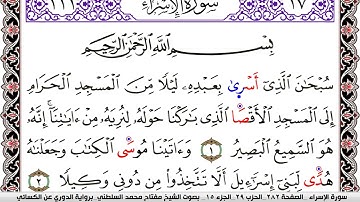 ١١١ سورة الإسراء ١٧
بِسْمِ اللَّهِ الرَّحْمَٰنِ الرَّحِيمِ
سُبْحَٰنَ الَّذِىٓ أَسْرِىٰ بِعَبْدِهِۦ لَيْلًا مِّنَ الْمَسْجِدِ الْحَرَامِ
إِلَى الْمَسْجِدِ الْأَقْصَا الَّذِى بَٰرَكْنَا حَوْلَهُۥ لِنُرِيَهُۥ مِنْ ءَايَٰتِنَآ ۚ إِنَّهُۥ
هُوَ السَّمِيعُ الْبَصِيرُ ١ وَءَاتَيْنَا مُوسَى الْكِتَٰبَ وَجَعَلْنَٰهُ
هُدًى لِّبَنِىٓ إِسْرَٰٓءِيلَ أَلَّا تَتَّخِذُوا۟ مِن دُونِى وَكِيلًا ٢
سورة الإسراء الصفحة ٢٨٢ الحزب ٢٩ الجزء ١٥ بصوت الشيخ مفتاح محمد السلطني برواية الدوري عن الكسائي